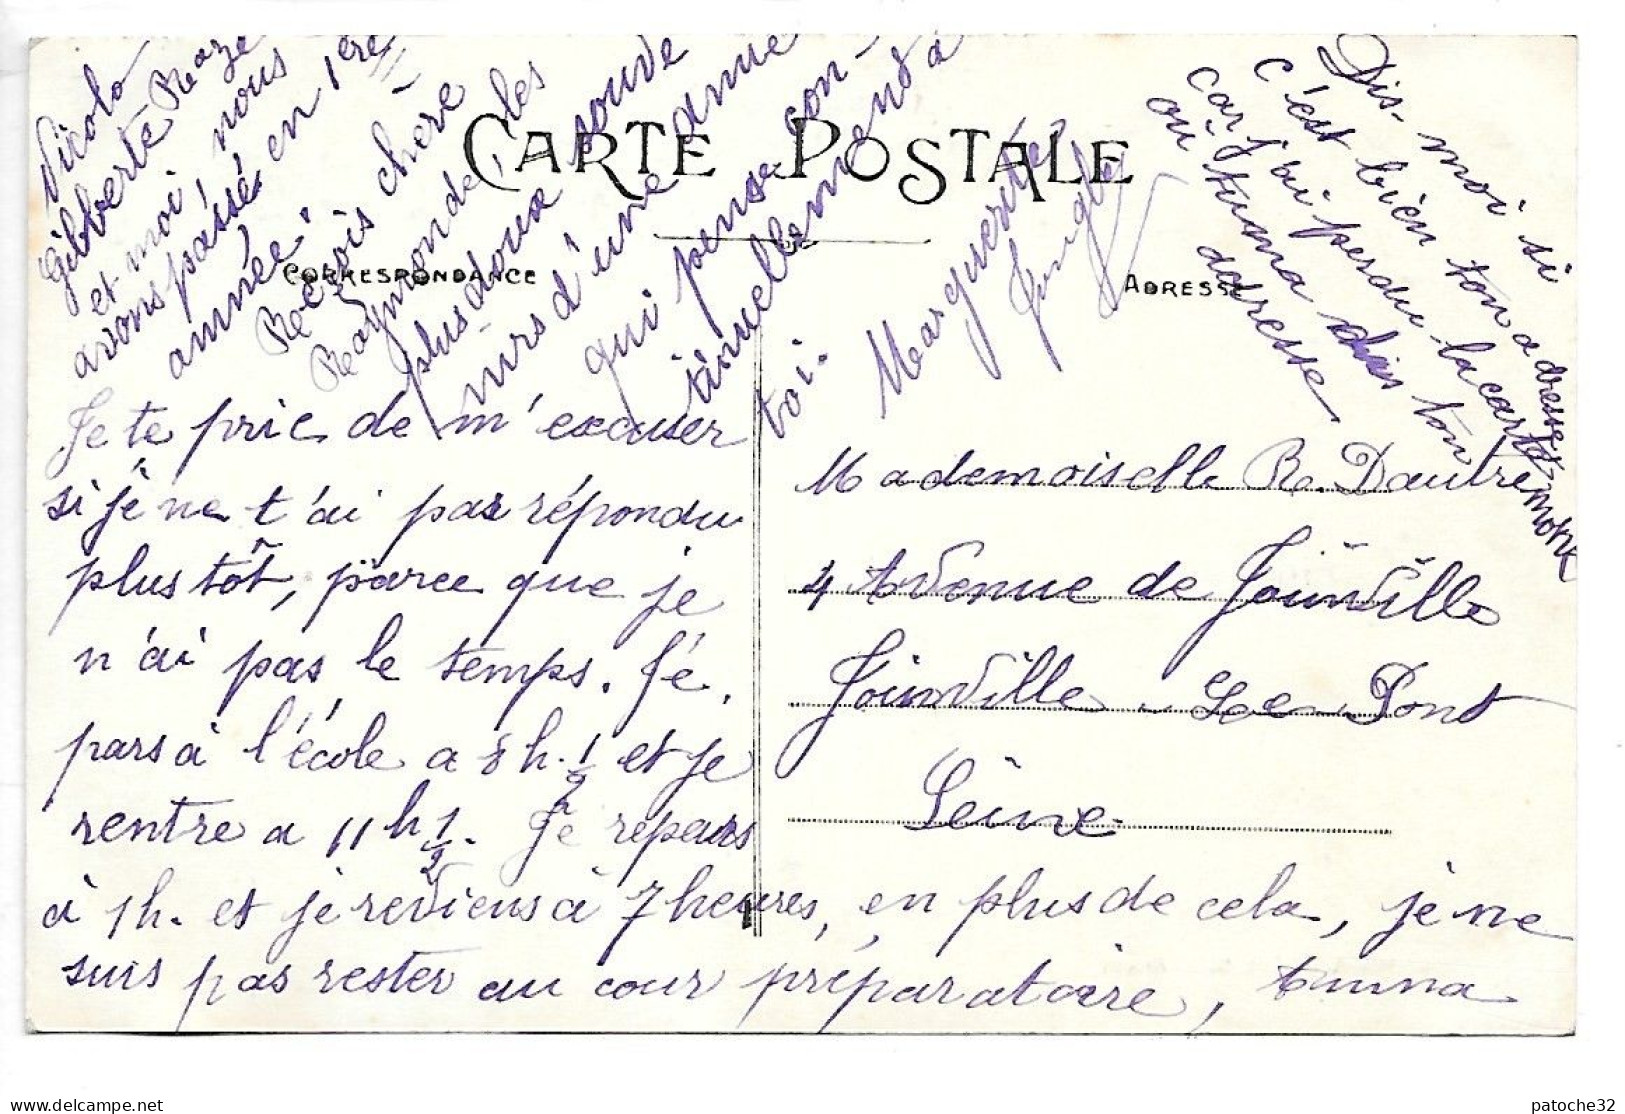 CARTE POSTALE
CORRESPONDANCE
ADRESSE
Je te prie de m'excuser
si je ne t'ai pas répondu
plus tôt, parce que je
n'ai pas le temps. Je.
pars à l'école a 8 h. 1/2 et je
rentre a 11 h 1/2. Je repars
à 1h. et je reviens à 7 heures, en plus de cela, je ne
suis pas rester au cour préparatoire,
Gilberte Raze
et moi nous
avons passé en 1ère
année!
Reçois chère
Raymonde, les
plus doux souve
nirs d'une amie
qui pense con-
tinuellement à
toi.
Marguerite
Mademoiselle R. Dautremont
4 Avenue de Joinville
Joinville - Le Pont
Seine
Dis-moi si
c'est bien ton adresse
car j'ai perdu la carte
où tu m'a mis ton
adresse
patoche32